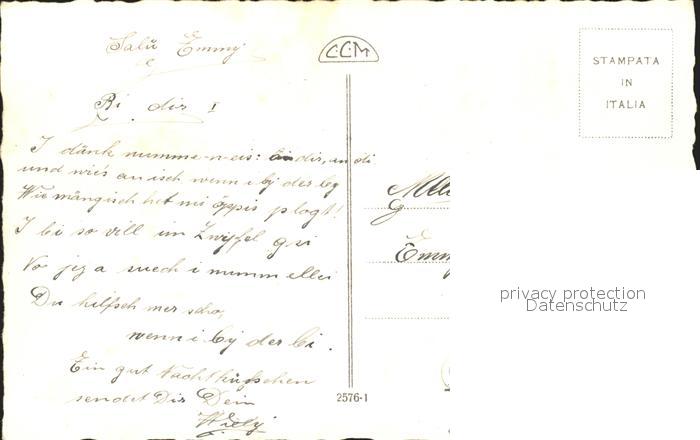 Salü Emmy
C.C.M
STAMPATA
IN
ITALIA
Bi dir !
I dänk numme-n-eis: an dir, un di
und wie's au isch wenn i bj der beg
Wie mängisch het mi öppis plogt!
I bi so vill im Zwyfel gsi
Vo jez a suech i numm ellei
Du hilfsch mer scho,
wenn i bj der bi.
Ein gut Nachtküsschen
sendet Dir Dein
Willy
Mlle
Emm
privacy protection
Datenschutz
2576-1